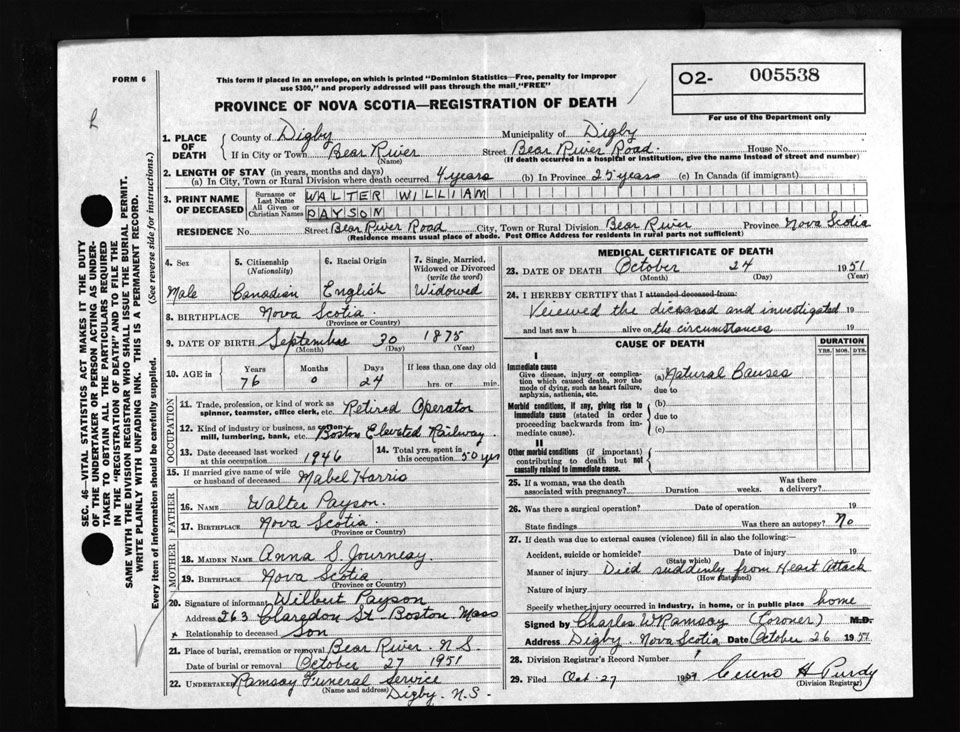 FORM 6
This form if placed in an envelope, on which is printed "Dominion Statistics—Free, penalty for improper
use $300," and properly addressed will pass through the mail "FREE"
PROVINCE OF NOVA SCOTIA—REGISTRATION OF DEATH
O2- 005538
For use of the Department only
SEC. 46—VITAL STATISTICS ACT MAKES IT THE DUTY
OF THE UNDERTAKER OR PERSON ACTING AS UNDER-
TAKER TO OBTAIN ALL THE PARTICULARS REQUIRED
IN THE "REGISTRATION OF DEATH" AND TO FILE THE
SAME WITH THE DIVISION REGISTRAR WHO SHALL ISSUE THE BURIAL PERMIT.
WRITE PLAINLY WITH UNFADING INK. THIS IS A PERMANENT RECORD.
Every item of information should be carefully supplied. (See reverse side for instructions.)
1. PLACE OF DEATH
County of Digby Municipality of Digby
If in City or Town Bear River Street Bear River Road. House No.
(Name) (If death occurred in a hospital or institution, give the name instead of street and number)
2. LENGTH OF STAY (in years, months and days)
(a) In City, Town or Rural Division where death occurred 4 years (b) In Province 25 years (c) In Canada (if immigrant)
3. PRINT NAME OF DECEASED
Surname or Last Name WALTER WILLIAM
All Given or Christian Names PAYSON
RESIDENCE No. Street Bear River Road City, Town or Rural Division Bear River Province Nova Scotia
(Residence means usual place of abode. Post Office Address for residents in rural parts not sufficient)
4. Sex Male
5. Citizenship (Nationality) Canadian
6. Racial Origin English
7. Single, Married, Widowed or Divorced (write the word) Widowed
8. BIRTHPLACE Nova Scotia.
(Province or Country)
9. DATE OF BIRTH September 30 1875
(Month) (Day) (Year)
10. AGE in Years Months Days If less than one day old
76 0 24 hrs. or min.
OCCUPATION
11. Trade, profession, or kind of work as
spinner, teamster, office clerk, etc. Retired Operator
12. Kind of industry or business, as cotton
mill, lumbering, bank, etc. Boston Elevated Railway.
13. Date deceased last worked
at this occupation 1946
14. Total yrs. spent in
this occupation 50 yrs
15. If married give name of wife
or husband of deceased Mabel Harris
FATHER
16. NAME Walter Payson.
17. BIRTHPLACE Nova Scotia.
(Province or Country)
MOTHER
18. MAIDEN NAME Anna S. Journeay.
19. BIRTHPLACE Nova Scotia
(Province or Country)
20. Signature of informant Wilbert Payson
Address 263 Claredon St. Boston Mass
x Relationship to deceased Son
21. Place of burial, cremation or removal Bear River. N.S.
Date of burial or removal October 27 1951
22. UNDERTAKER Ramsay Funeral Service
(Name and address) Digby. N.S.
MEDICAL CERTIFICATE OF DEATH
23. DATE OF DEATH October 24 1951
(Month) (Day) (Year)
24. I HEREBY CERTIFY that I attended deceased from:
Veiwed the diceased and investigated 19
and last saw h alive on the circumstances 19
CAUSE OF DEATH
DURATION
YRS. MOS. DYS.
I
Immediate cause
Give disease, injury or complica-
tion which caused death, NOT the
mode of dying, such as heart failure,
asphyxia, asthenia, etc.
(a) Natural Causes
due to
Morbid conditions, if any, giving rise to
immediate cause (stated in order
proceeding backwards from im-
mediate cause).
(b)
due to
(c)
II
Other morbid conditions (if important)
contributing to death but not
causally related to immediate cause.
25. If a woman, was the death
associated with pregnancy? Duration weeks. Was there
a delivery?
26. Was there a surgical operation? Date of operation 19
State findings Was there an autopsy? No
27. If death was due to external causes (violence) fill in also the following:—
Accident, suicide or homicide? Date of injury 19
(State which)
Manner of injury Died suddenly from Heart Attack
Nature of injury
Specify whether injury occurred in industry, in home, or in public place home
Signed by Charles W Ramsay (Coroner) M.D.
Address Digby. Nova Scotia Date October 26 1951
28. Division Registrar's Record Number
29. Filed Oct. 27 1951 H Purdy
(Division Registrar)